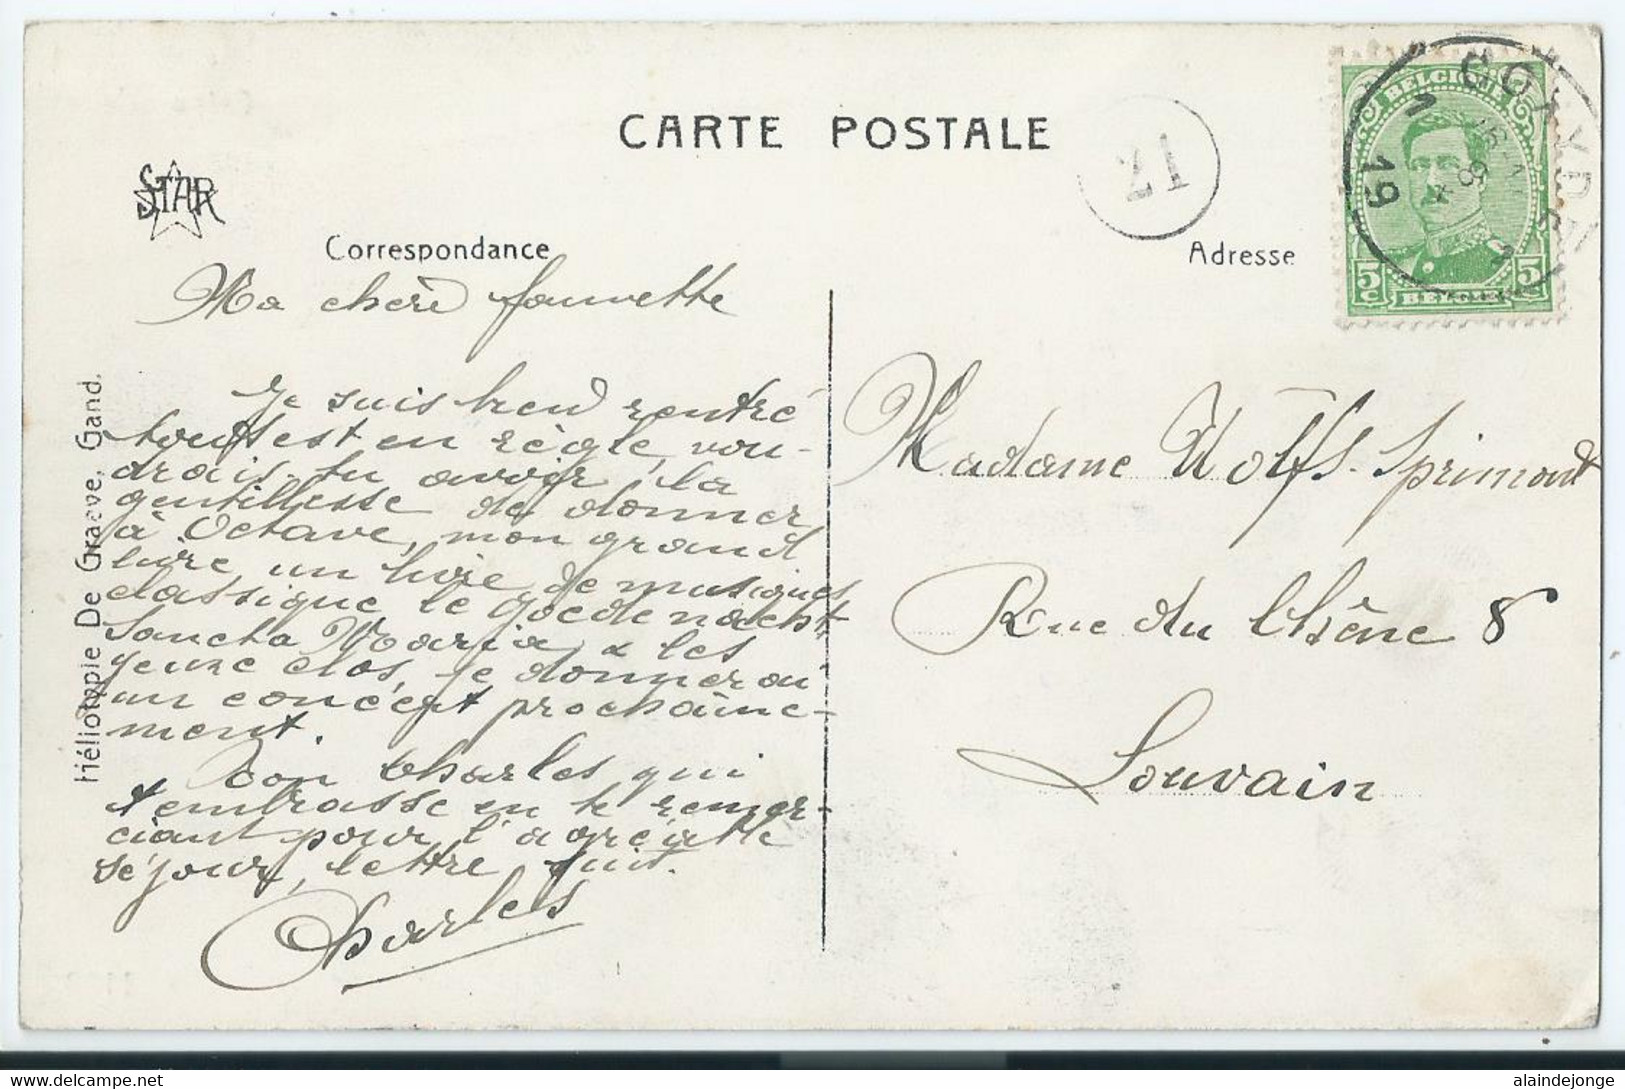 CARTE POSTALE
STAR
21
Correspondance
Adresse
BELGIQUE
5c BELGIE 5c
COXYDE
19
Héliotypie De Graeve, Gand.
Ma chère fauvette
Je suis bien rentré
tout est en règle, vou-
drais-tu avoir la
gentillesse de donner
à Octave, mon grand
livre, un livre de musiques
classique le goedenacht
Sancta Maria & les
yeux clos, je donnerai
un concert prochaine-
ment.
Ton Charles qui
t'embrasse en te remer-
ciant pour l'agréable
séjour, lettre suit.
Charles
Madame Wolfs-Sprimont
Rue du Chêne 8
Louvain
alaindejonge